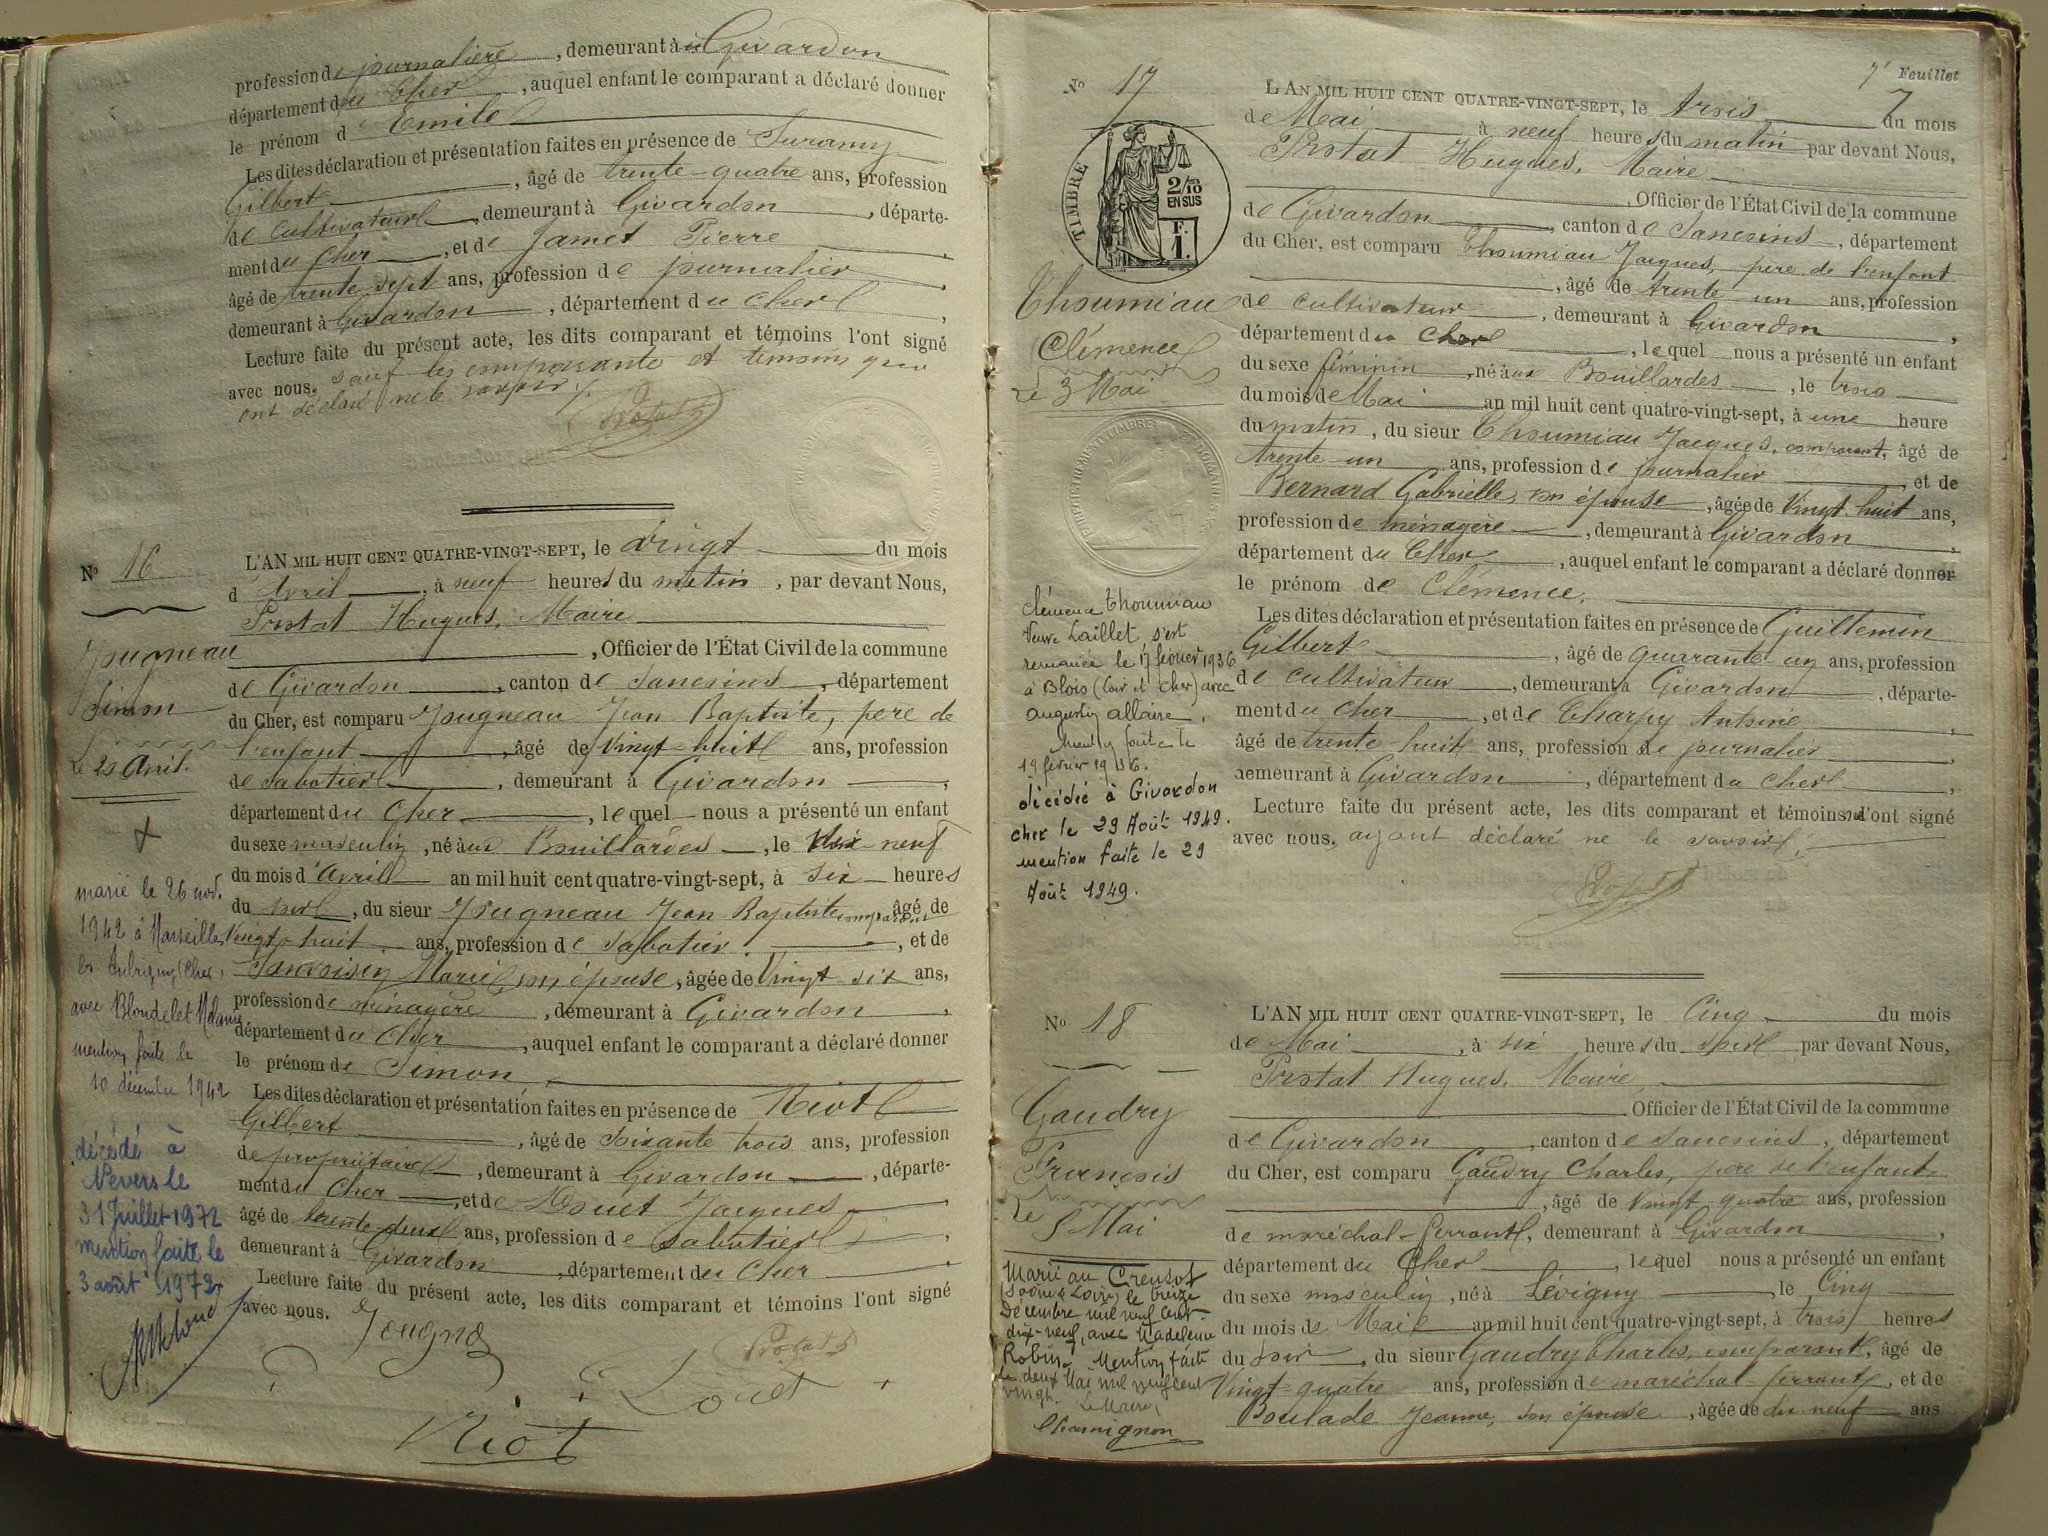 profession de journalière, demeurant à Givardon
département du Cher, auquel enfant le comparant a déclaré donner
le prénom d Emile
Les dites déclaration et présentation faites en présence de Suramy
Gilbert, âgé de trente-quatre ans, profession
de cultivateur, demeurant à Givardon, départe-
ment du Cher, et de Jamet Pierre,
âgé de trente sept ans, profession de journalier
demeurant à Givardon, département du Cher,
Lecture faite du présent acte, les dits comparant et témoins l'ont signé
avec nous, sauf les comparants et témoins qui
ont déclaré ne le savoir ./.
Protat
N° 16
Jougneau
Simon
Le 20 Avril.
marié le 26 nov.
1942 à Marseilles
les Aubigny (Cher)
avec Blondelet Mélanie
mention faite le
10 décembre 1942
décédé à
Nevers le
31 Juillet 1972
mention faite le
3 août 1972
L'AN MIL HUIT CENT QUATRE-VINGT-SEPT, le vingt du mois
d'Avril, à neuf heures du matin, par devant Nous,
Protat Hugues, Maire
, Officier de l'État Civil de la commune
de Givardon, canton de Sancoins, département
du Cher, est comparu Jougneau Jean Baptiste, père de
l'enfant, âgé de vingt-huit ans, profession
de sabotier, demeurant à Givardon,
département du Cher, lequel nous a présenté un enfant
du sexe masculin, né aux Bouillardes, le dix-neuf
du mois d'Avril an mil huit cent quatre-vingt-sept, à six heures
du soir, du sieur Jougneau Jean Baptiste comparant âgé de
vingt-huit ans, profession de sabotier, et de
Marie son épouse, âgée de vingt six ans,
profession de ménagère, demeurant à Givardon,
département du Cher, auquel enfant le comparant a déclaré donner
le prénom de Simon.
Les dites déclaration et présentation faites en présence de Riot
Gilbert, âgé de soixante trois ans, profession
de propriétaire, demeurant à Givardon, départe-
ment du Cher, et de Jacques,
âgé de trente-deux ans, profession de sabotier,
demeurant à Givardon, département du Cher
Lecture faite du présent acte, les dits comparant et témoins l'ont signé
avec nous.
Protat
Riot
7e Feuillet
7
N° 17
TIMBRE
2/10 EN SUS
F. 1.
Thoumiau
Clémence
Le 3 Mai
ENREGISTREMENT TIMBRE ET DOMAINES
Clémence Thoumiau
Veuve Laillet s'est
remariée le 17 février 1936
à Blois (Loir et Cher) avec
Augustin Allaire.
Mention faite le
19 février 1936.
décédée à Givardon
cher le 29 Août 1949.
mention faite le 29
Août 1949.
L'AN MIL HUIT CENT QUATRE-VINGT-SEPT, le trois du mois
de Mai à neuf heures du matin par devant Nous,
Protat Hugues, Maire
, Officier de l'État Civil de la commune
de Givardon, canton de Sancoins, département
du Cher, est comparu Thoumiau Jacques, père de l'enfant
, âgé de trente un ans, profession
de cultivateur, demeurant à Givardon,
département du Cher, lequel nous a présenté un enfant
du sexe féminin, né aux Bouillardes, le trois
du mois de Mai an mil huit cent quatre-vingt-sept, à une heure
du matin, du sieur Thoumiau Jacques, comparant, âgé de
trente-un ans, profession de journalier, et de
Bernard Gabrielle, son épouse, âgée de vingt-huit ans,
profession de ménagère, demeurant à Givardon,
département du Cher, auquel enfant le comparant a déclaré donner
le prénom de Clémence.
Les dites déclaration et présentation faites en présence de Guillemin
Gilbert, âgé de quarante-un ans, profession
de cultivateur, demeurant à Givardon, départe-
ment du Cher, et de Charpy Antoine
âgé de trente-huit ans, profession de journalier,
demeurant à Givardon, département du Cher,
Lecture faite du présent acte, les dits comparant et témoins l'ont signé
avec nous. ayant déclaré ne le savoir.
Protat
N° 18
Gaudry
François
Le 5 Mai
Marié au Creusot
(Saône & Loire) le treize
Décembre mil neuf cent
dix-neuf, avec Madeleine
Robin. Mention faite
le deux Mai mil neuf cent
vingt.
Le Maire,
Chamignon
L'AN MIL HUIT CENT QUATRE-VINGT-SEPT, le Cinq du mois
de Mai, à six heures du soir par devant Nous,
Protat Hugues, Maire
, Officier de l'État Civil de la commune
de Givardon, canton de Sancoins, département
du Cher, est comparu Gaudry Charles, père de l'enfant
, âgé de vingt-quatre ans, profession
de maréchal-ferrant, demeurant à Givardon,
département du Cher, lequel nous a présenté un enfant
du sexe masculin, né à Lévigny, le Cinq
du mois de Mai an mil huit cent quatre-vingt-sept, à trois heures
du soir, du sieur Gaudry Charles, comparant, âgé de
vingt-quatre ans, profession de maréchal-ferrant, et de
Boulade Jeanne, son épouse, âgée de dix neuf ans